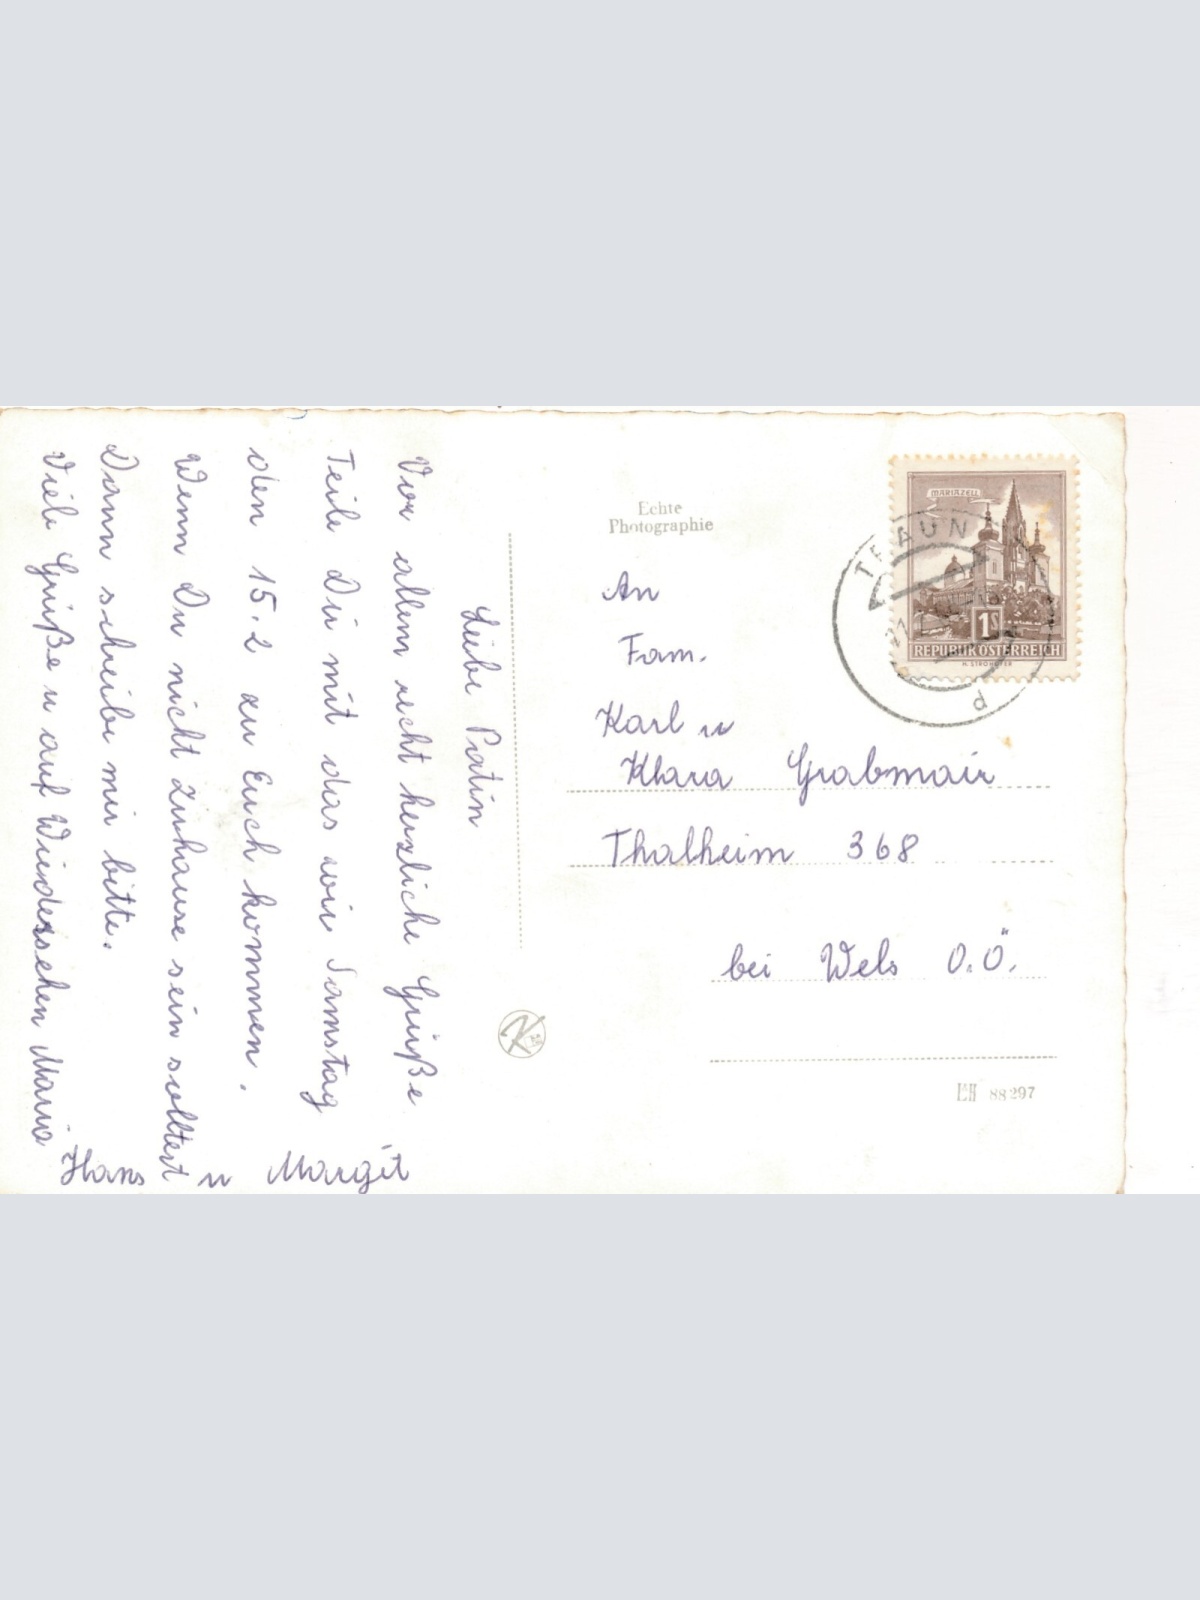 Liebe Patin
Vor allem recht herzliche Grüße
Teile Dir mit das wir Samstag
den 15.2 zu Euch kommen.
Wenn Du nicht Zuhause sein solltest
Dann schreibe mir bitte.
Viele Grüße u auf Wiedersehen Maria
Hans u Margit
Echte
Photographie
An
Fam.
Karl u
Klara Grabmair
Thalheim 368
bei Wels O.Ö.
MARIAZELL
1S
REPUBLIK ÖSTERREICH
H. STROHOFER
TRAUN
21.
d
K
88297